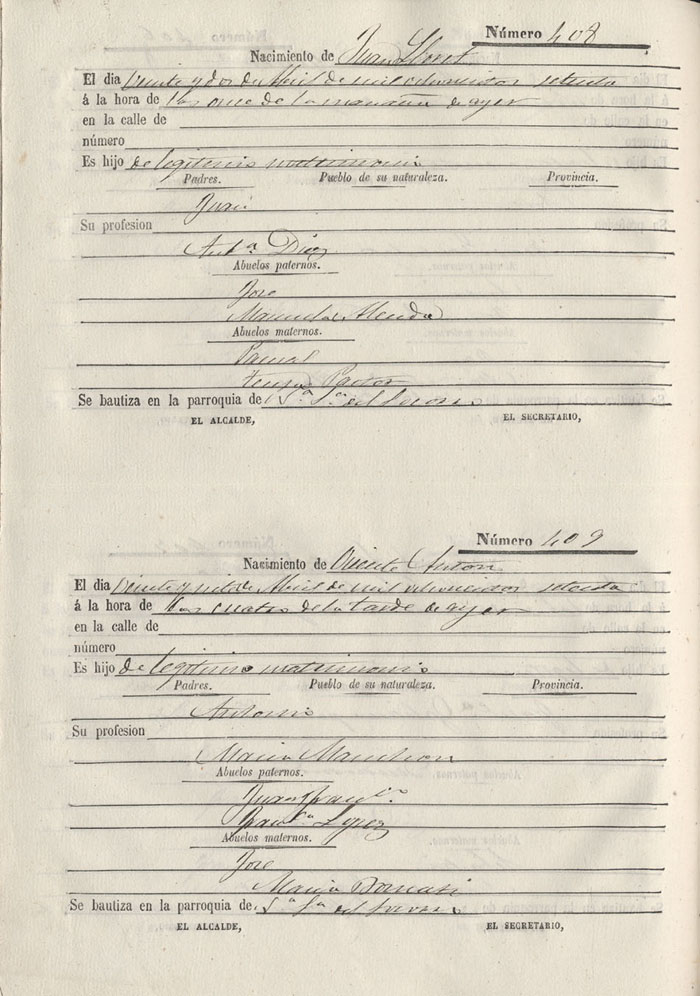 Número 408
Nacimiento de Juan Lloret
El dia veinte y dos de Abril de mil ochocientos setenta
á la hora de las once de la mañana de ayer
en la calle de
número
Es hijo de legitimo matrimonio
Padres. Pueblo de su naturaleza. Provincia.
Juan
Su profesion
Ant.ª Diez
Abuelos paternos.
Jose
Manuela
Abuelos maternos.
Pascual
Teresa Pastor
Se bautiza en la parroquia de
EL ALCALDE, EL SECRETARIO,
Número 409
Nacimiento de Vicente Anton
El dia veinte y de Abril de mil ochocientos setenta
á la hora de las cuatro de la tarde de ayer
en la calle de
número
Es hijo de legitimo matrimonio
Padres. Pueblo de su naturaleza. Provincia.
Antonio
Su profesion
Maria
Abuelos paternos.
Juan
Fran.ca Lopez
Abuelos maternos.
Jose
Maria
Se bautiza en la parroquia de
EL ALCALDE, EL SECRETARIO,